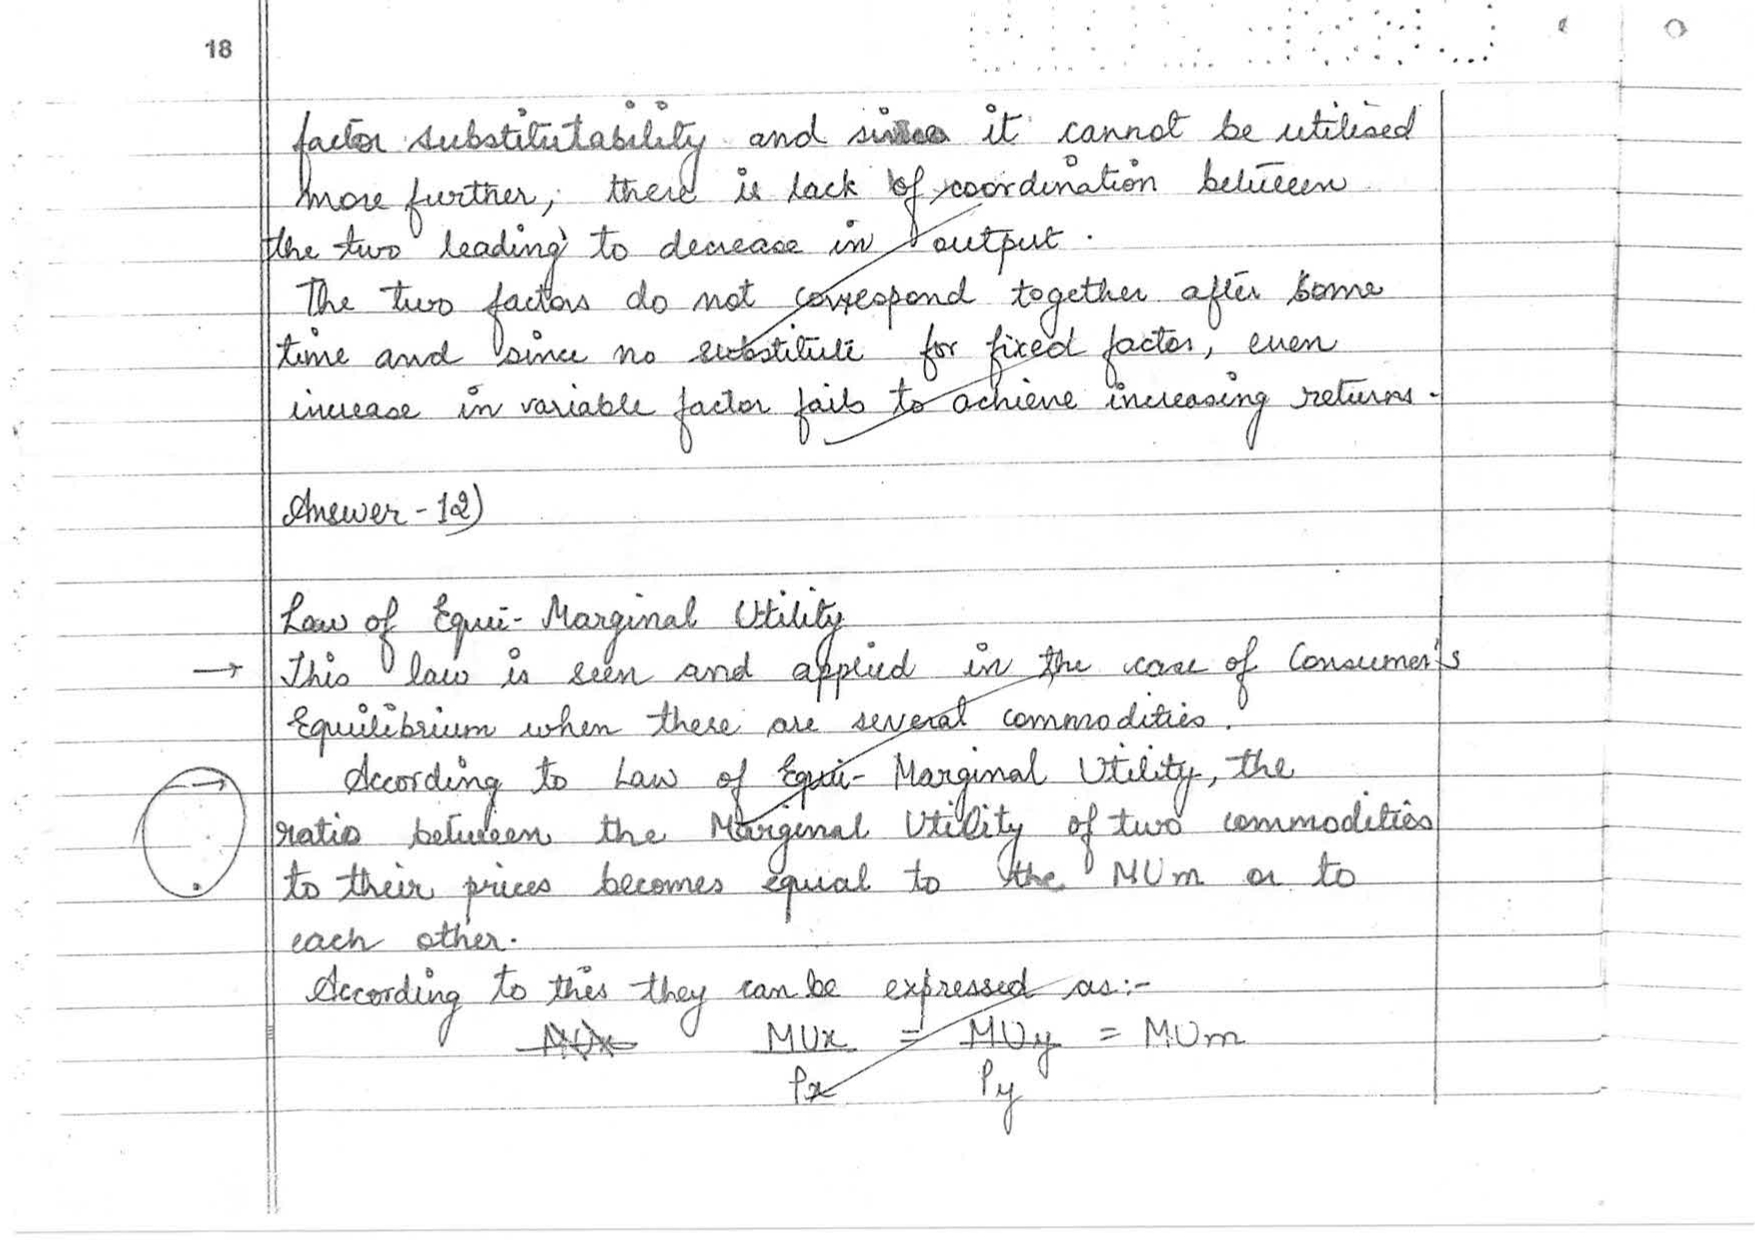 18
factor substitutability and since it cannot be utilised
more further, there is lack of coordination between
the two leading to decrease in output.
The two factors do not correspond together after some
time and since no substitute for fixed factor, even
increase in variable factor fails to achieve increasing returns.
Answer-12)
Law of Equi-Marginal Utility
→ This law is seen and applied in the case of Consumer's
Equilibrium when there are several commodities.
→ According to Law of Equi-Marginal Utility, the
ratio between the Marginal Utility of two commodities
to their prices becomes equal to the MUm or to
each other.
According to this they can be expressed as:-
MUx MUx = MUy = MUm
Px Py